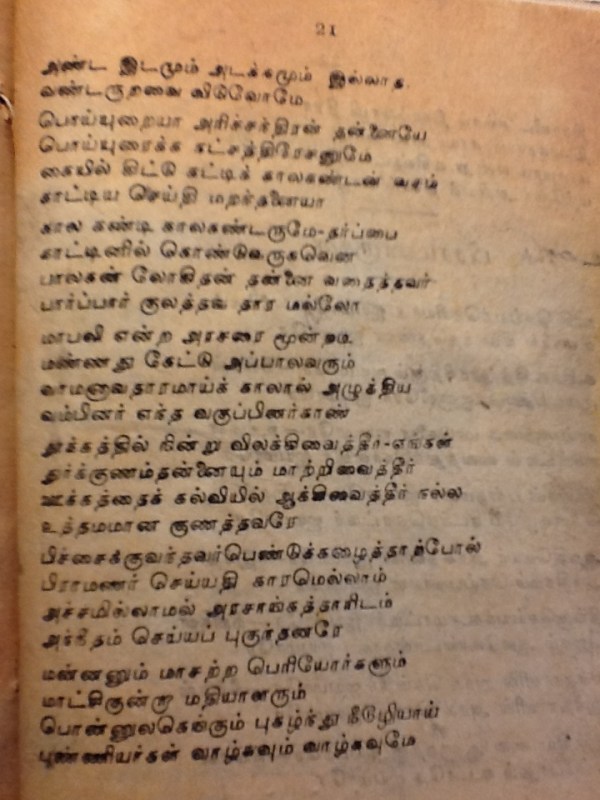 21
அண்ட இடமும் அடக்கமும் இல்லாத
வண்டருறவை விடுவோமே
பொய்யுறையா அரிச்சந்திரன் தன்னையே
பொய்யுரைக்க கட்சத்திரேசனுமே
கையில் கிட்டு கட்டிக் காலகண்டன் வசம்
காட்டிய செய்தி மறந்தனையா
கால கண்டி காலகண்டருமே-தர்ப்பை
காட்டினில் கொண்டுவருகவென
பாலகன் லோகிதன் தன்னை வதைத்தவர்
பார்ப்பார் குலத்தவ தார மல்லோ
மாபலி என்ற அரசரை மூன்றடி
மண்ணது கேட்டு அப்பாலவரும்
வாமனவதாரமாய்க் காலால் அழுத்திய
வம்பினர் எந்த வகுப்பினர்காண்
தூக்கத்தில் நின்று விலக்கிவைத்தீர்-எங்கள்
துர்க்குணம்தன்னையும் மாற்றிவைத்தீர்
ஊக்கத்தைக் கல்வியில் ஆக்கிவைத்தீர் நல்ல
உத்தமமான குணத்தவரே
பிச்சைக்குவந்தவர்பெண்டுக்கழைத்தாற்போல்
பிராமணர் செய்யதி காரமெல்லாம்
அச்சமில்லாமல் அரசாங்கத்தாரிடம்
அநீதம் செய்யப் புகுந்தனரே
மன்னனும் மாசற்ற பெரியோர்களும்
மாட்சிகுன்றா மதியாளரும்
பொன்னுலகெங்கும் புகழ்ந்து நீடூழியாய்
புண்ணியர்கள் வாழ்கவும் வாழ்கவுமே